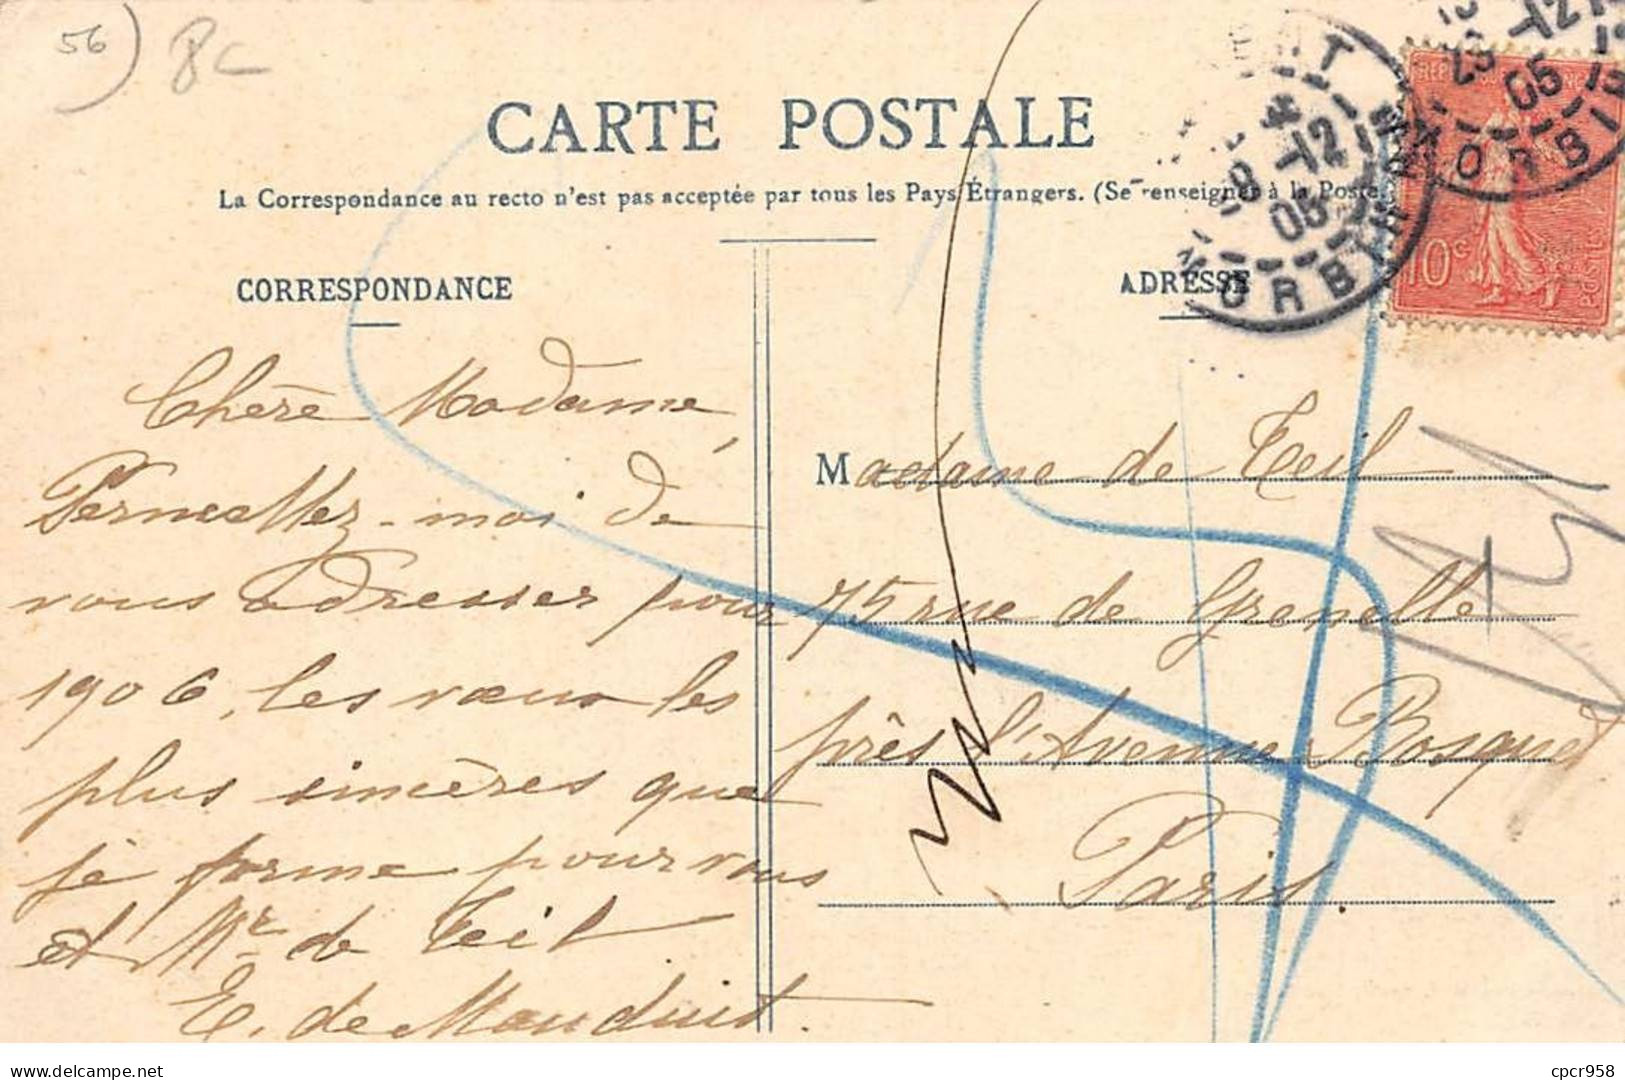 56
8c
CARTE POSTALE
La Correspondance au recto n'est pas acceptée par tous les Pays Étrangers. (Se renseigner à la Poste.)
CORRESPONDANCE
ADRESSE
Chère Madame,
Permettez-moi de
vous adresser pour
1906, les vœux les
plus sincères que
je forme pour vous
et Mr de Teil
E. de Mauduit.
Madame de Teil
75 rue de Grenelle
près l'Avenue Bosquet
Paris.
-12
05
ORBI
-12
05
ORBI
10c
POSTES
delcampe.net
cpcr958